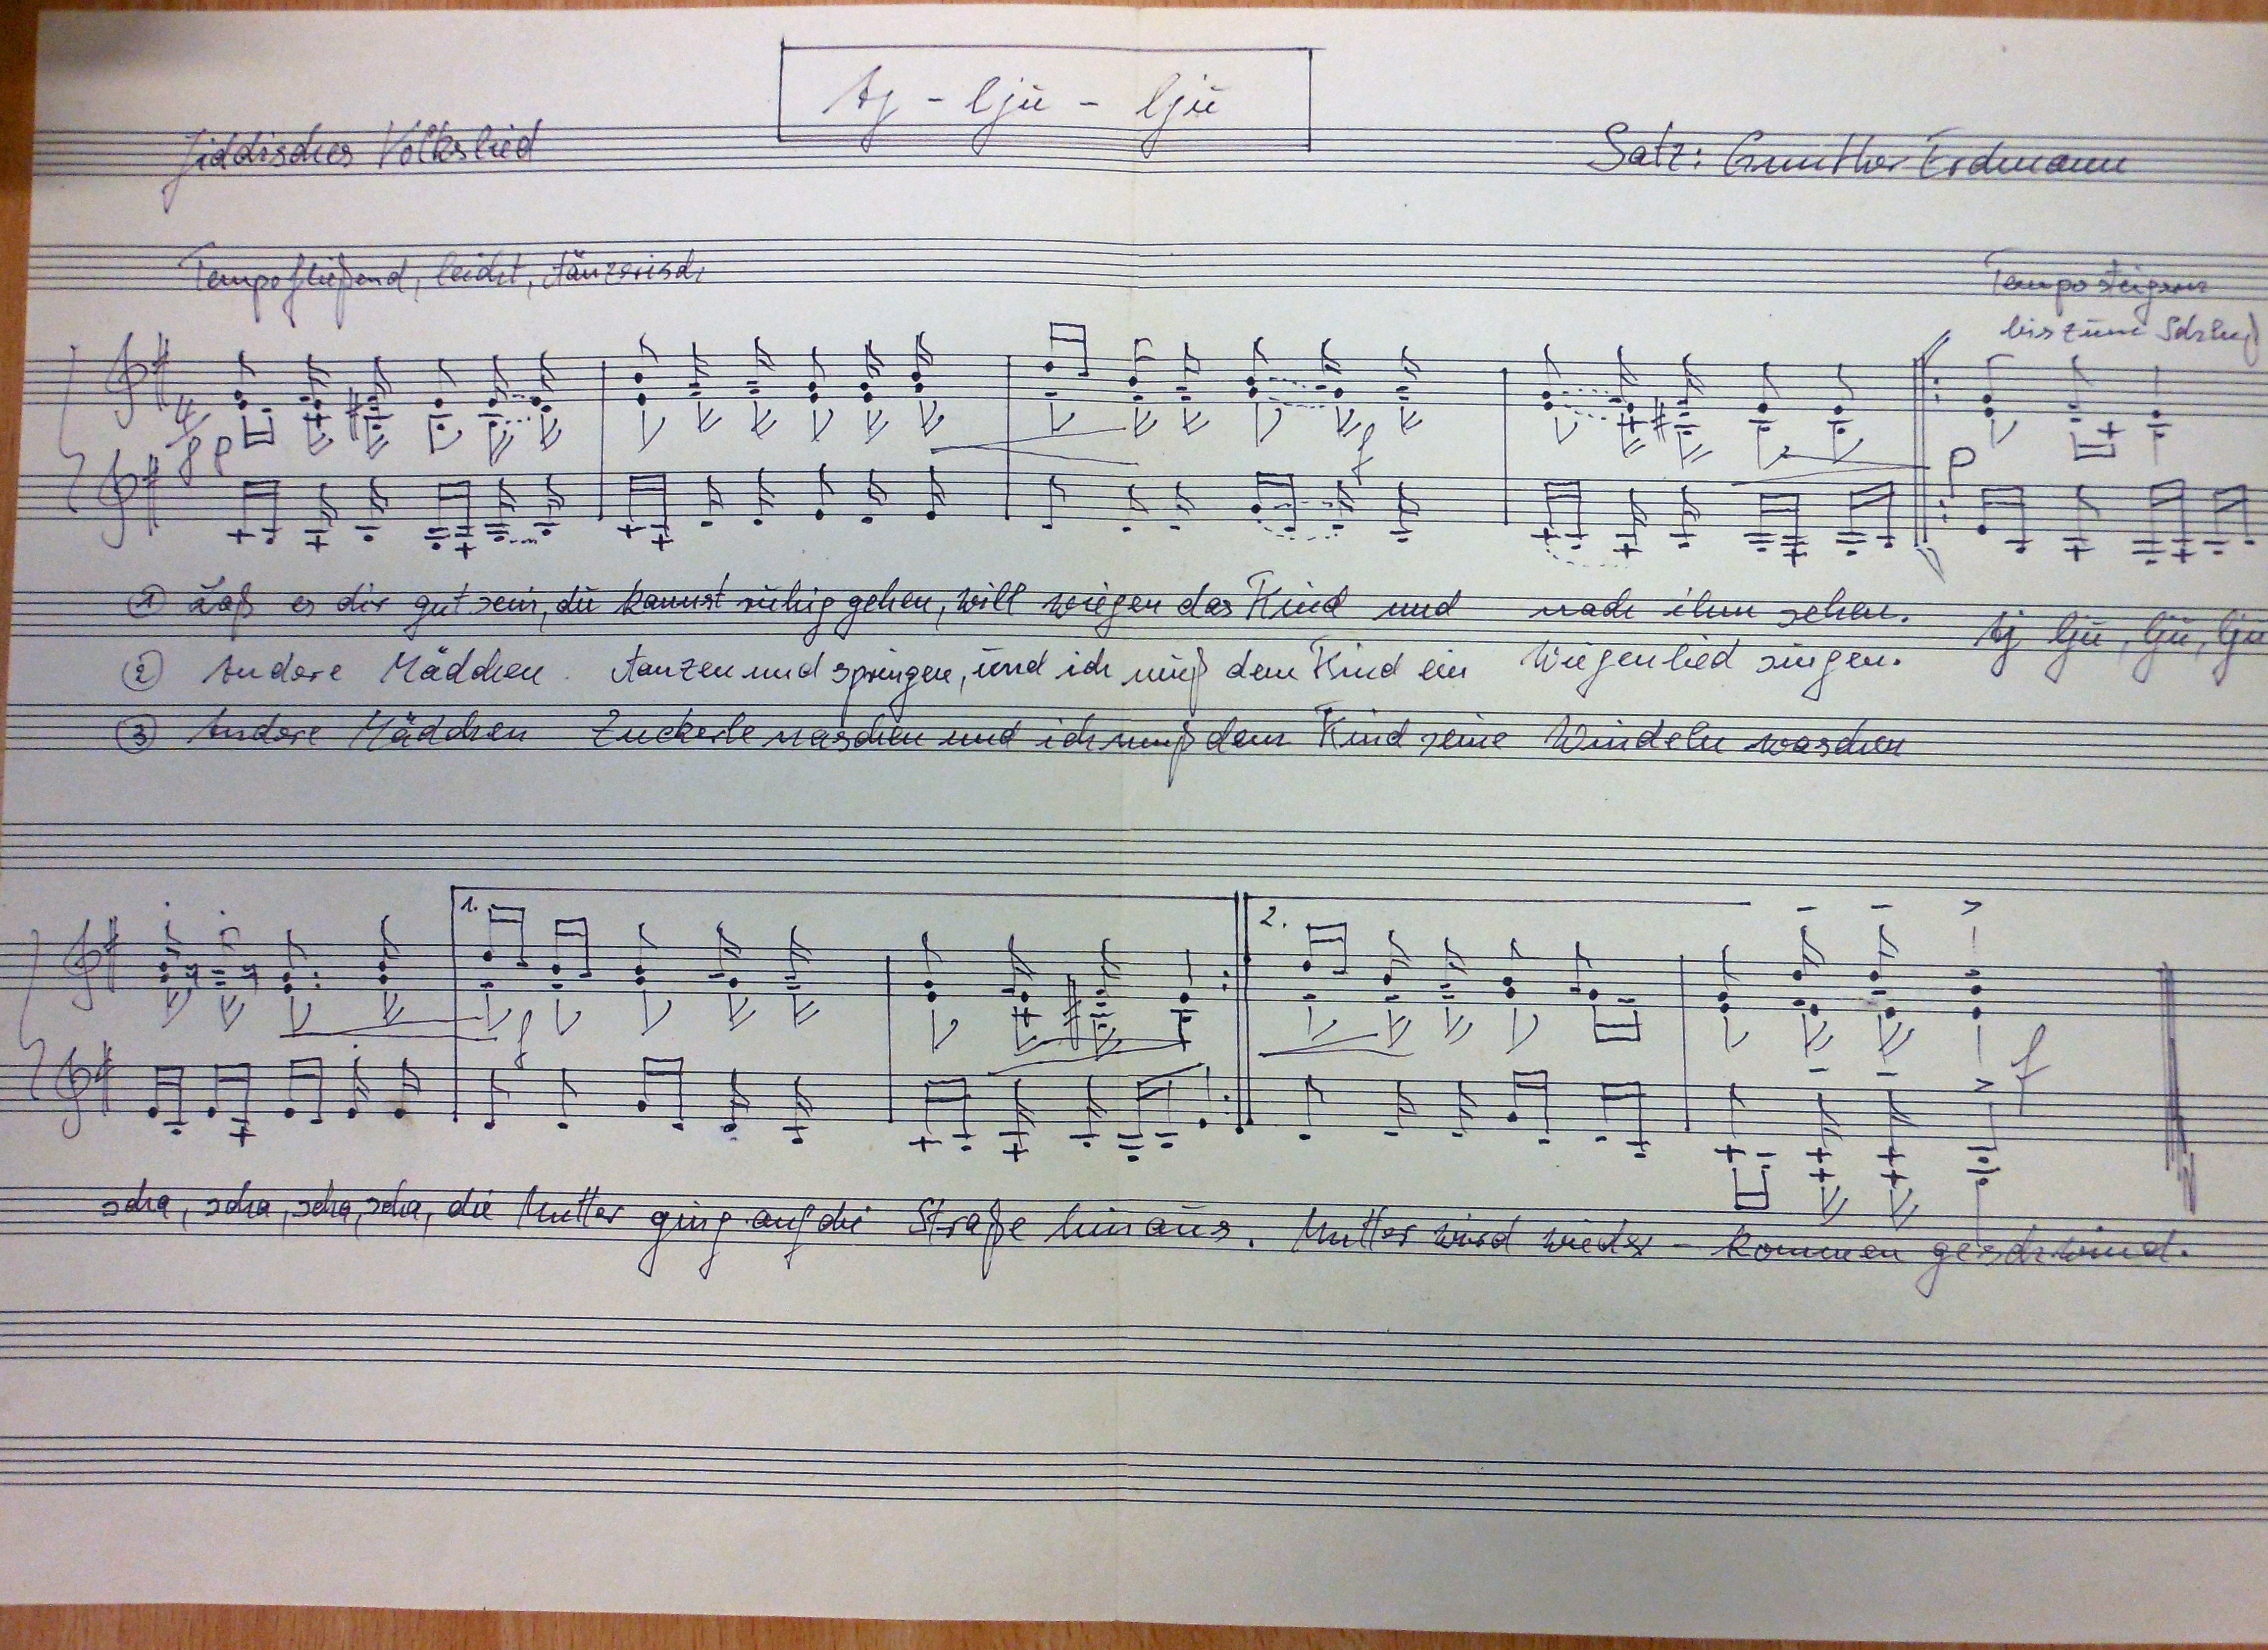 Aj - lju - lju
Jiddisches Volkslied
Satz: Gunther Erdmann
Tempo fließend, leicht, tänzerisch
Tempo steigern
bis zum Schluß
pp
f
p
① Laß es dir gut sein, du kannst ruhig gehen, will wiegen das Kind und nach ihm sehen. Aj lju, lju, lju
② Andere Mädchen tanzen und springen, und ich muß dem Kind ein Wiegenlied singen.
③ Andere Mädchen Zuckerle naschen und ich muß dem Kind seine Windeln waschen
1.
2.
f
f
scha, scha, scha, scha, die Mutter ging auf die Straße hinaus. Mutter wird wieder - kommen geschwind.